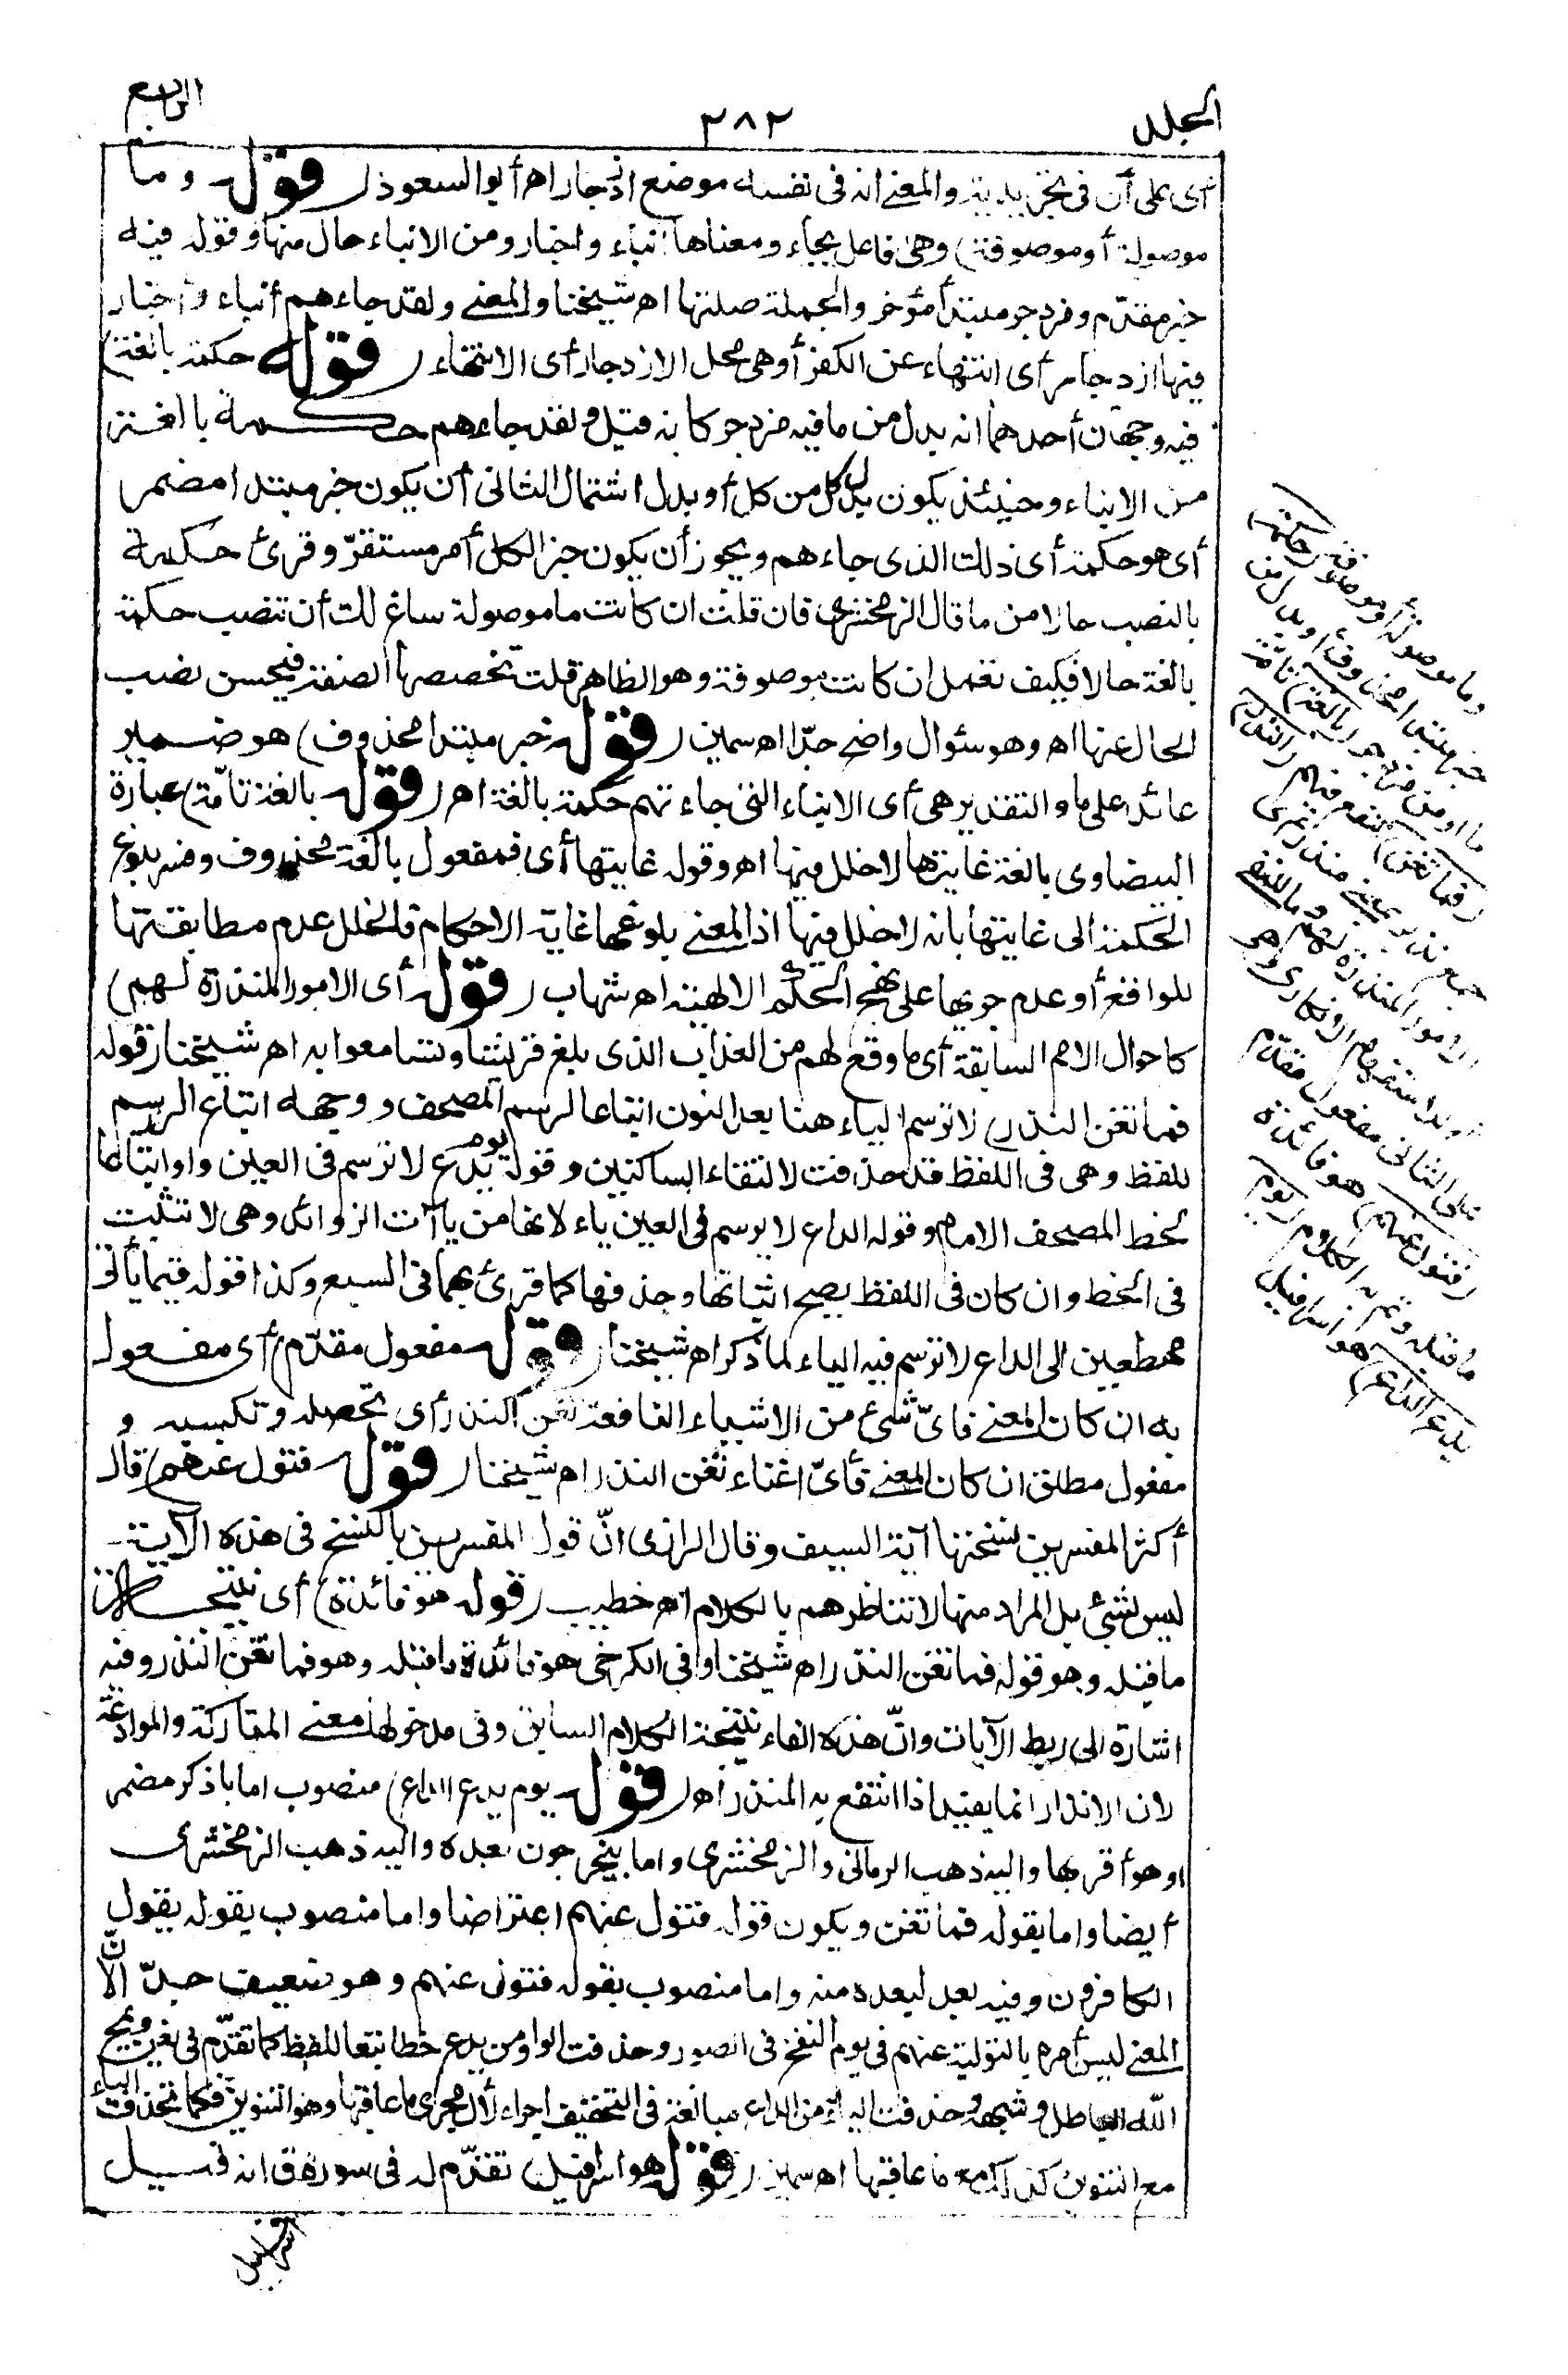 المجلد
٢٨٢
الرابع
أى على أن فى تجريدية والمعنى انه فى نفسه موضع ازدجار اهـ أبو السعود (قوله وما
موصولة أو موصوفة) وهى فاعل بجاء ومعناها أنباء واخبار ومن الانباء حال منها وقوله فيه
خبر مقدّم ومزدجر مبتدأ مؤخر والجملة صلتها اهـ شيخنا والمعنى ولقد جاءهم أنباء وأخبار
فيها ازدجار أى انتهاء عن الكفر أو هى محل الازدجار أى الانتهاء (قوله حكمة بالغة)
فيه وجهان أحدهما انه بدل من ما فيه مزدجر كانه قيل ولقد جاءهم حكمة بالغة
من الانباء وحينئذ يكون بدل كل من كل أو بدل اشتمال الثانى أن يكون خبر مبتدا مضمر
أى هو حكمة أى ذلك الذى جاءهم ويجوز أن يكون خبر الكل أمر مستقرّ وقرئ حكمة
بالنصب حالا من ما قال الزمخشرى فان قلت ان كانت ما موصولة ساغ لك أن تنصب حكمة
بالغة حالا فكيف تعمل ان كانت موصوفة وهو الظاهر قلت تخصصها الصفة فيحسن نصب
الحال عنها اهـ وهو سئوال واضح جدّا اهـ سمين (قوله خبر مبتدا محذوف) هو ضمير
عائد على ما والتقدير هى أى الانباء التى جاءتهم حكمة بالغة اهـ (قوله بالغة تامّة) عبارة
البيضاوى بالغة غايتها لا خلل فيها اهـ وقوله غايتها أى فمفعول بالغة محذوف وفسر بلوغ
الحكمة الى غايتها بانه لا خلل فيها اذ المعنى بلوغها غاية الاحكام فالخلل عدم مطابقتها
للواقع أو عدم جريها على نهج الحكم الالهية اهـ شهاب (قوله أى الامور المنذرة لهم)
كاحوال الامم السابقة أى ما وقع لهم من العذاب الذى بلغ قريشا وتسامعوا به اهـ شيخنا (قوله
فما تغن النذر) لا ترسم الياء هنا بعد النون اتباعا لرسم المصحف ووجهه اتباع الرسم
للفظ وهى فى اللفظ قد حذفت لالتقاء الساكنين وقوله يوم يدع لا ترسم فى العين واو اتباعا
لخط المصحف الامام وقوله الداع لا يرسم فى العين ياء لانها من يا آت الزوائد وهى لا تثبت
فى الخط وان كان فى اللفظ يصح اثباتها وحذفها كما قرئ بهما فى السبع وكذا قوله فيما يأتى
مهطعين الى الداع لا ترسم فيه الياء لما ذكر اهـ شيخنا (قوله مفعول مقدّم) أى مفعول
به ان كان المعنى فاىّ شىء من الاشياء النافعة تغن النذر أى تحصله وتكسبه و
مفعول مطلق ان كان المعنى فأىّ اغناء تغن النذر اهـ شيخنا (قوله فتول عنهم) قال
أكثر المفسرين نسختها آية السيف وقال الرازى انّ قول المفسرين بالنسخ فى هذه الآية
ليس بشئ بل المراد منها لا تناظرهم بالكلام اهـ خطيب (قوله هو فائدة) أى نتيجة
ما قبله وهو قوله فما تغن النذر اهـ شيخنا وفى الكرخى هو فائدة ما قبله وهو فما تغن النذر وفيه
اشارة الى ربط الآيات وانّ هذه الفاء نتيجة الكلام السابق وفى مدخولها معنى المتاركة والموادعة
لان الانذار انما يفيد اذا انتفع به المنذر اهـ (قوله يوم يدع الداع) منصوب اما باذكر مضمر
اوهو أقربها واليه ذهب الرمانى والزمخشرى واما بيخرجون بعده واليه ذهب الزمخشرى
أيضا واما بقوله فما تغن ويكون قوله فتول عنهم اعتراضا واما منصوب بقوله يقول
الكافرون وفيه بعد لبعده منه واما منصوب بقوله فتول عنهم وهو ضعيف جدّا لانّ
المعنى ليس أمره بالتولية عنهم فى يوم النفخ فى الصور وحذفت الواو من يدع خطا تبعا للفظ كما تقدّم فى تغن ويمح
الله الباطل وشبهه وحذفت الياء من الداع مبالغة فى التخفيف اجراء لأل مجرى ما عاقبها وهو التنوين فكما تحذف الياء
مع التنوين كذلك مع ما عاقبها اهـ سمين (قوله هو اسرافيل) تقدّم له فى سورة ق انه قيل
اسرافيل
وما موصولة أو موصوفة (حكمة)
خبر مبتدا محذوف أو بدل من
ما أو من مزدجر (بالغة) تامة
(فما تغن) تنفع فيهم (النذر)
جمع نذير بمعنى منذر أى
الامور المنذرة لهم وما للنفى
أو للاستفهام الانكارى وهى
على الثانى مفعول مقدّم
(فتول عنهم) هو فائدة
ما قبله وتم به الكلام (يوم
يدع الداع) هو اسرافيل